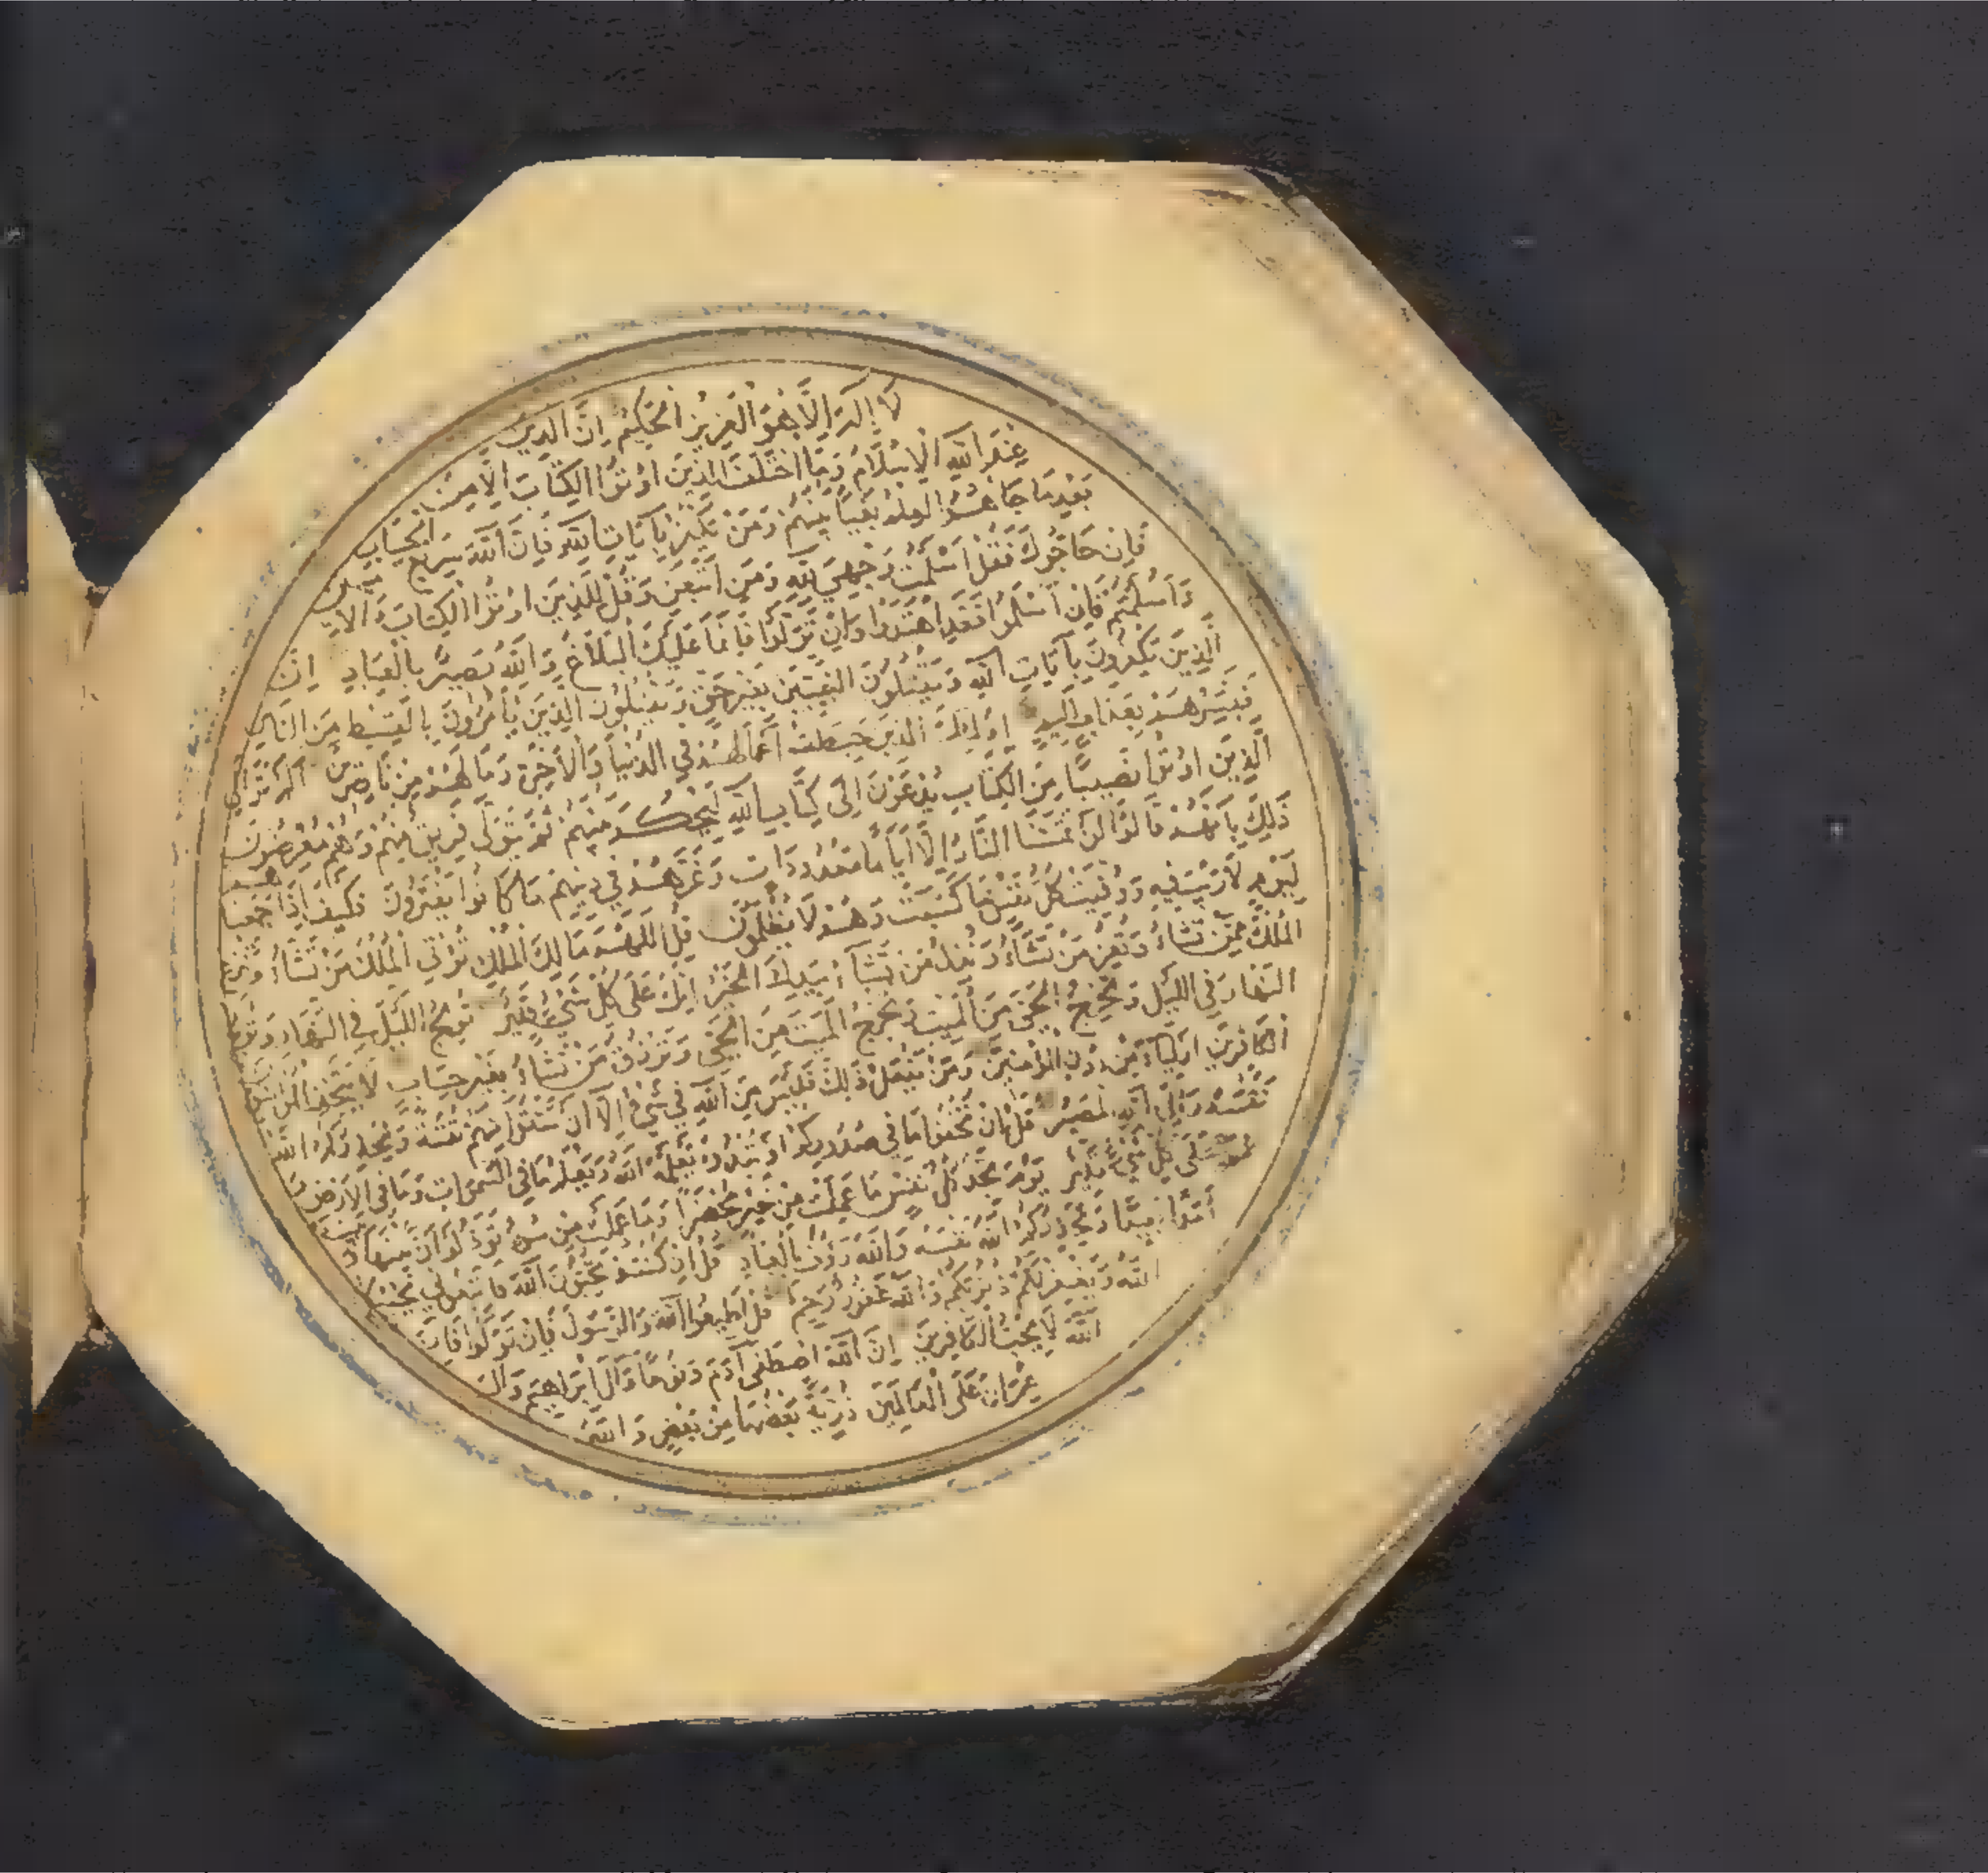 لَا إِلَهَ إِلَّا هُوَ الْعَزِيزُ الْحَكِيمُ إِنَّ الدِّينَ
عِنْدَ اللَّهِ الْإِسْلَامُ وَمَا اخْتَلَفَ الَّذِينَ أُوتُوا الْكِتَابَ إِلَّا مِنْ
بَعْدِ مَا جَاءَهُمُ الْعِلْمُ بَغْيًا بَيْنَهُمْ وَمَنْ يَكْفُرْ بِآيَاتِ اللَّهِ فَإِنَّ اللَّهَ سَرِيعُ الْحِسَابِ
فَإِنْ حَاجُّوكَ فَقُلْ أَسْلَمْتُ وَجْهِيَ لِلَّهِ وَمَنِ اتَّبَعَنِ وَقُلْ لِلَّذِينَ أُوتُوا الْكِتَابَ وَالْأُمِّيِّينَ
ءَأَسْلَمْتُمْ فَإِنْ أَسْلَمُوا فَقَدِ اهْتَدَوْا وَإِنْ تَوَلَّوْا فَإِنَّمَا عَلَيْكَ الْبَلَاغُ وَاللَّهُ بَصِيرٌ بِالْعِبَادِ إِنَّ
الَّذِينَ يَكْفُرُونَ بِآيَاتِ اللَّهِ وَيَقْتُلُونَ النَّبِيِّينَ بِغَيْرِ حَقٍّ وَيَقْتُلُونَ الَّذِينَ يَأْمُرُونَ بِالْقِسْطِ مِنَ النَّاسِ
فَبَشِّرْهُمْ بِعَذَابٍ أَلِيمٍ أُولَئِكَ الَّذِينَ حَبِطَتْ أَعْمَالُهُمْ فِي الدُّنْيَا وَالْآخِرَةِ وَمَا لَهُمْ مِنْ نَاصِرِينَ أَلَمْ تَرَ إِلَى
الَّذِينَ أُوتُوا نَصِيبًا مِنَ الْكِتَابِ يُدْعَوْنَ إِلَى كِتَابِ اللَّهِ لِيَحْكُمَ بَيْنَهُمْ ثُمَّ يَتَوَلَّى فَرِيقٌ مِنْهُمْ وَهُمْ مُعْرِضُونَ
ذَلِكَ بِأَنَّهُمْ قَالُوا لَنْ تَمَسَّنَا النَّارُ إِلَّا أَيَّامًا مَعْدُودَاتٍ وَغَرَّهُمْ فِي دِينِهِمْ مَا كَانُوا يَفْتَرُونَ فَكَيْفَ إِذَا جَمَعْنَاهُمْ
لِيَوْمٍ لَا رَيْبَ فِيهِ وَوُفِّيَتْ كُلُّ نَفْسٍ مَا كَسَبَتْ وَهُمْ لَا يُظْلَمُونَ قُلِ اللَّهُمَّ مَالِكَ الْمُلْكِ تُؤْتِي الْمُلْكَ مَنْ تَشَاءُ وَتَنْزِعُ
الْمُلْكَ مِمَّنْ تَشَاءُ وَتُعِزُّ مَنْ تَشَاءُ وَتُذِلُّ مَنْ تَشَاءُ بِيَدِكَ الْخَيْرُ إِنَّكَ عَلَى كُلِّ شَيْءٍ قَدِيرٌ تُولِجُ اللَّيْلَ فِي النَّهَارِ وَتُولِجُ
النَّهَارَ فِي اللَّيْلِ وَتُخْرِجُ الْحَيَّ مِنَ الْمَيِّتِ وَتُخْرِجُ الْمَيِّتَ مِنَ الْحَيِّ وَتَرْزُقُ مَنْ تَشَاءُ بِغَيْرِ حِسَابٍ لَا يَتَّخِذِ الْمُؤْمِنُونَ
الْكَافِرِينَ أَوْلِيَاءَ مِنْ دُونِ الْمُؤْمِنِينَ وَمَنْ يَفْعَلْ ذَلِكَ فَلَيْسَ مِنَ اللَّهِ فِي شَيْءٍ إِلَّا أَنْ تَتَّقُوا مِنْهُمْ تُقَاةً وَيُحَذِّرُكُمُ اللَّهُ
نَفْسَهُ وَإِلَى اللَّهِ الْمَصِيرُ قُلْ إِنْ تُخْفُوا مَا فِي صُدُورِكُمْ أَوْ تُبْدُوهُ يَعْلَمْهُ اللَّهُ وَيَعْلَمُ مَا فِي السَّمَوَاتِ وَمَا فِي الْأَرْضِ وَاللَّهُ
عَلَى كُلِّ شَيْءٍ قَدِيرٌ يَوْمَ تَجِدُ كُلُّ نَفْسٍ مَا عَمِلَتْ مِنْ خَيْرٍ مُحْضَرًا وَمَا عَمِلَتْ مِنْ سُوءٍ تَوَدُّ لَوْ أَنَّ بَيْنَهَا وَبَيْنَهُ
أَمَدًا بَعِيدًا وَيُحَذِّرُكُمُ اللَّهُ نَفْسَهُ وَاللَّهُ رَؤُوفٌ بِالْعِبَادِ قُلْ إِنْ كُنْتُمْ تُحِبُّونَ اللَّهَ فَاتَّبِعُونِي يُحْبِبْكُمُ
اللَّهُ وَيَغْفِرْ لَكُمْ ذُنُوبَكُمْ وَاللَّهُ غَفُورٌ رَحِيمٌ قُلْ أَطِيعُوا اللَّهَ وَالرَّسُولَ فَإِنْ تَوَلَّوْا فَإِنَّ
اللَّهَ لَا يُحِبُّ الْكَافِرِينَ إِنَّ اللَّهَ اصْطَفَى آدَمَ وَنُوحًا وَآلَ إِبْرَاهِيمَ وَآلَ
عِمْرَانَ عَلَى الْعَالَمِينَ ذُرِّيَّةً بَعْضُهَا مِنْ بَعْضٍ وَاللَّهُ